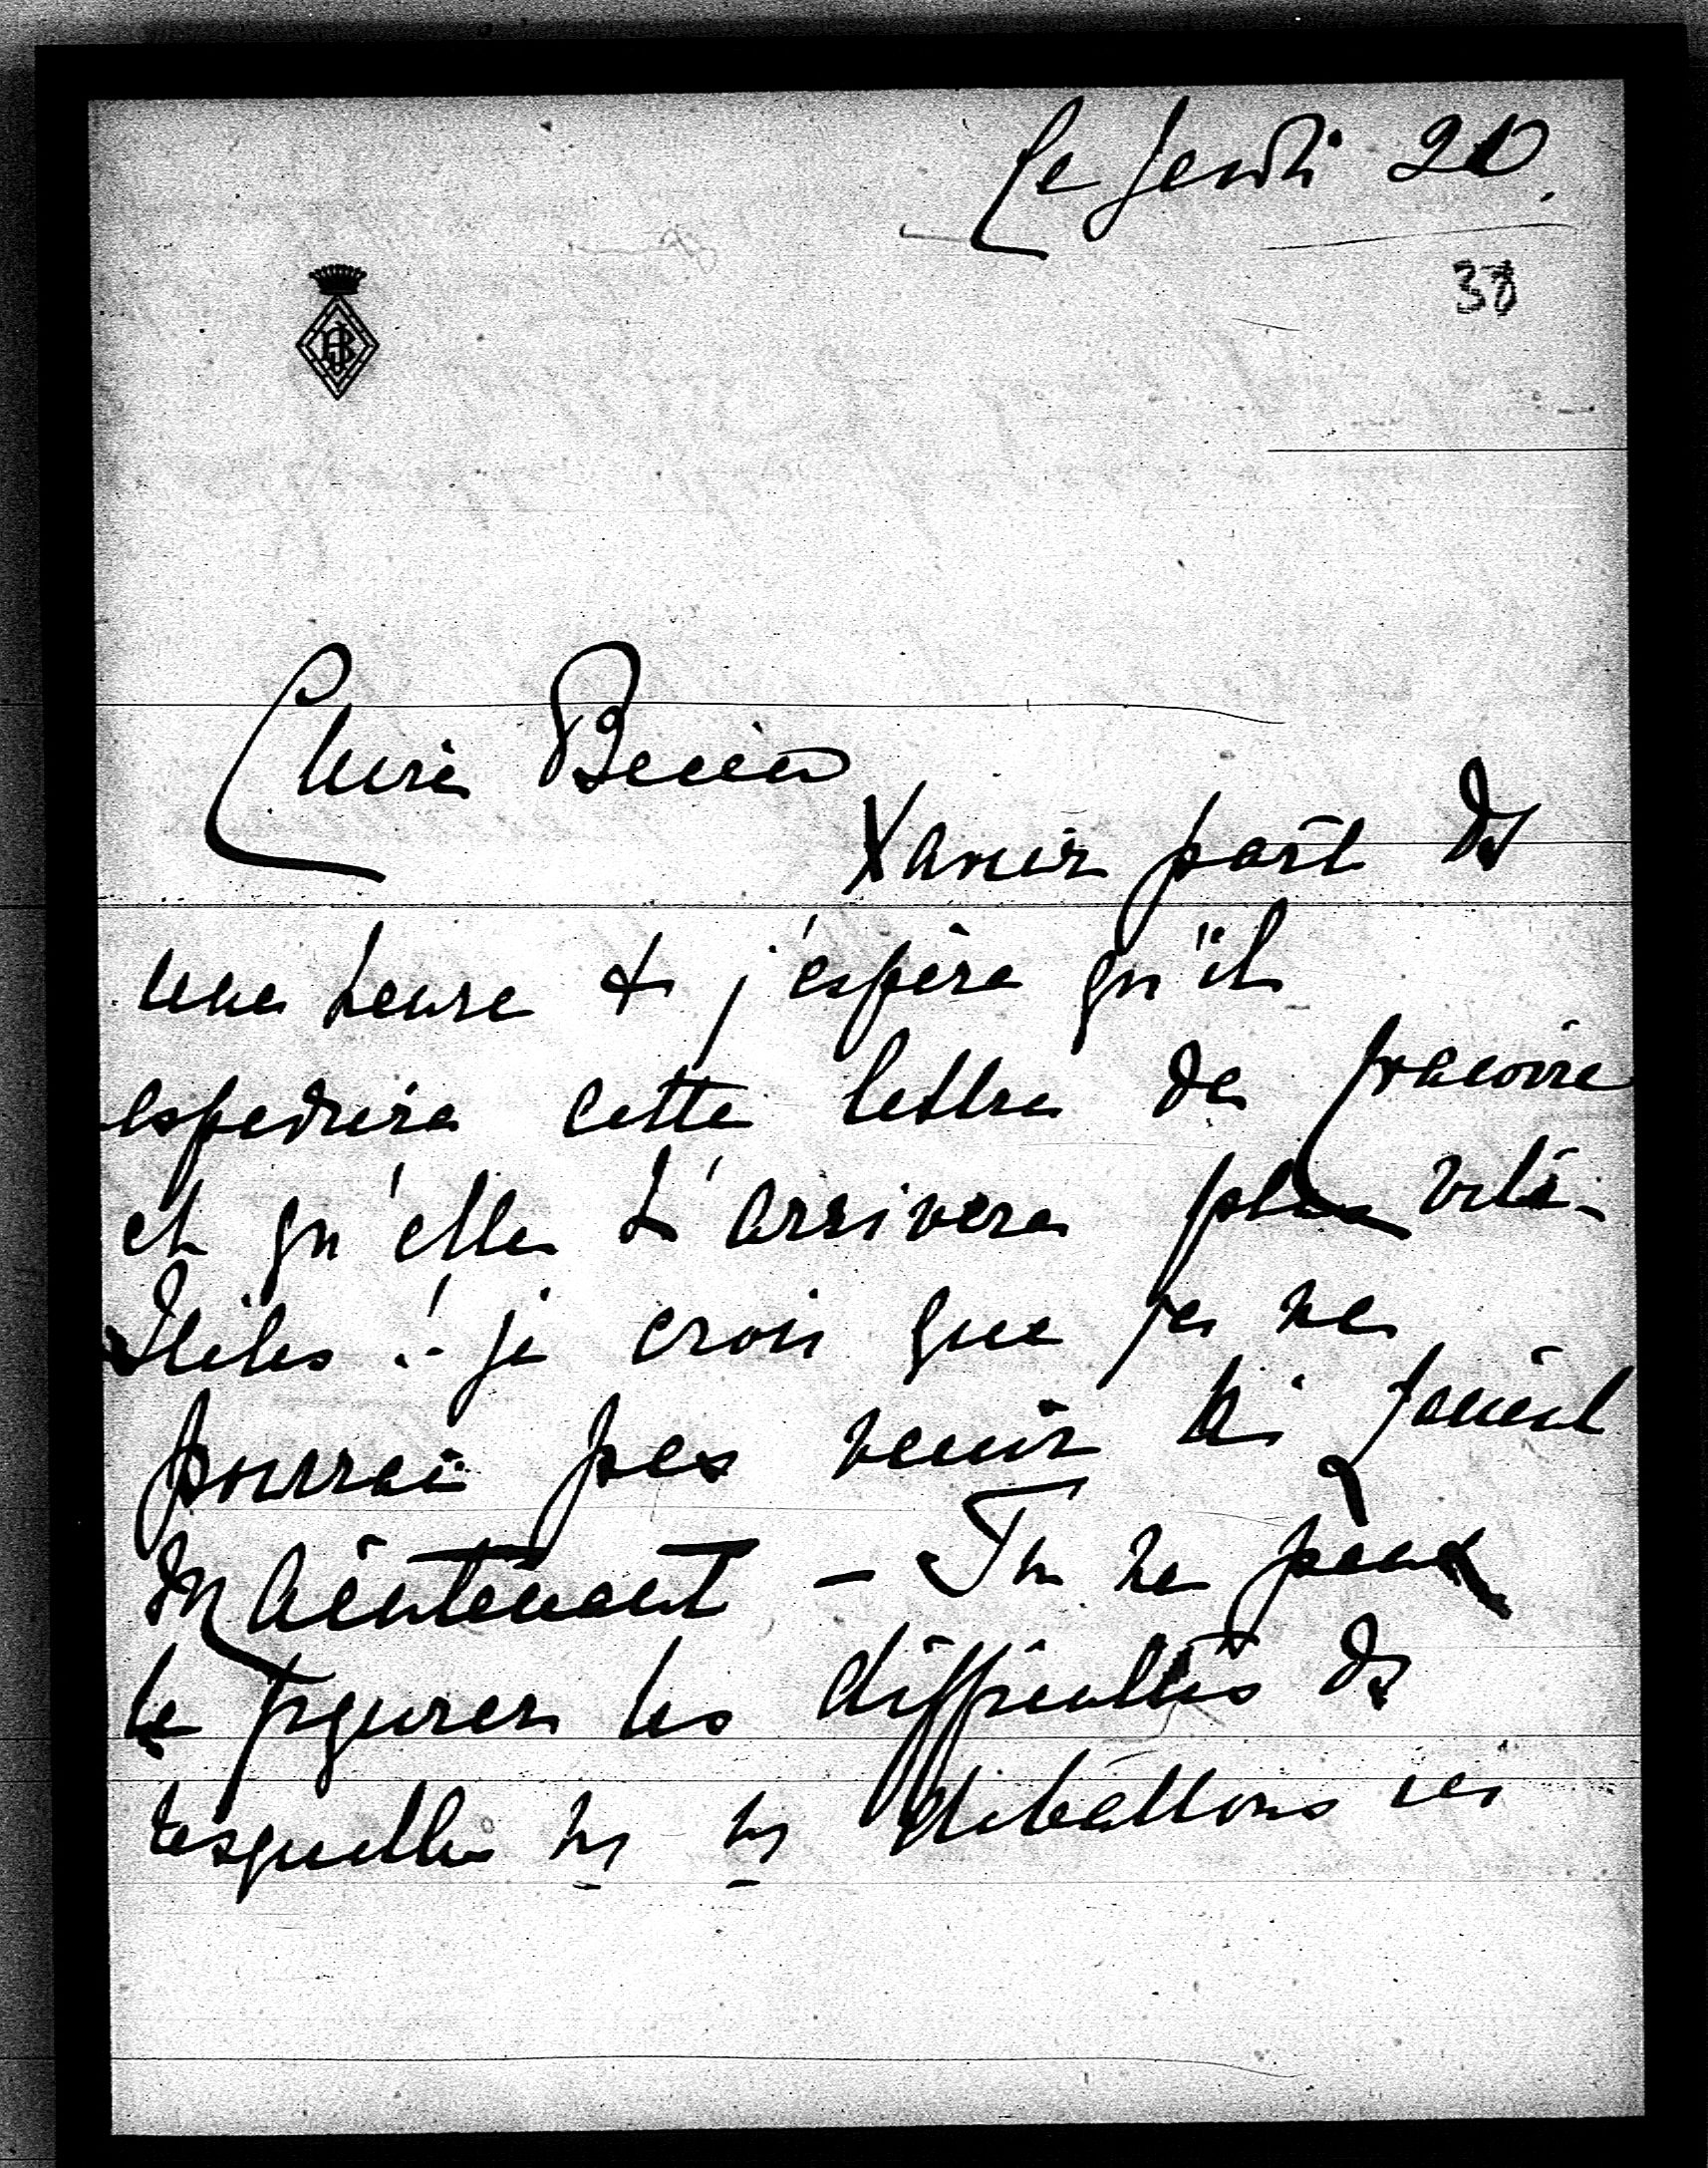 Le Jeudi 20.
38
Cheri
Xavier part ds
une heure & j'espère qu'il
expediera cette lettre de
et qu'elle t'arrivera plus vite -
Hélas ! je crois que je ne
pourrai pas venir
Maintenant - Tu ne peux
te figurer les difficultés ds
lesquelles ns ns débattons ici